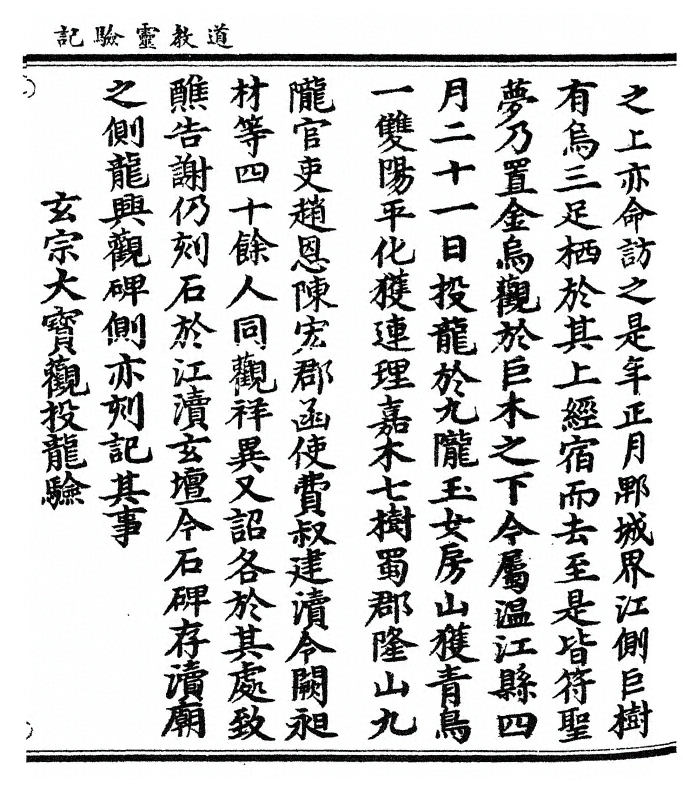 道教靈驗記
之上亦命訪之是年正月郫城界江側巨樹
有烏三足栖於其上經宿而去至是皆符聖
夢乃置金烏觀於巨木之下今屬温江縣四
月二十一日投龍於九隴玉女房山獲青鳥
一雙陽平化獲連理嘉木七樹蜀郡隆山九
隴官吏趙恩陳宏郡函使費叔建瀆令闕昶
材等四十餘人同觀祥異又詔各於其處致
醮告謝仍刻石於江瀆玄壇今石碑存瀆廟
之側龍興觀碑側亦刻記其事
玄宗大寶觀投龍驗